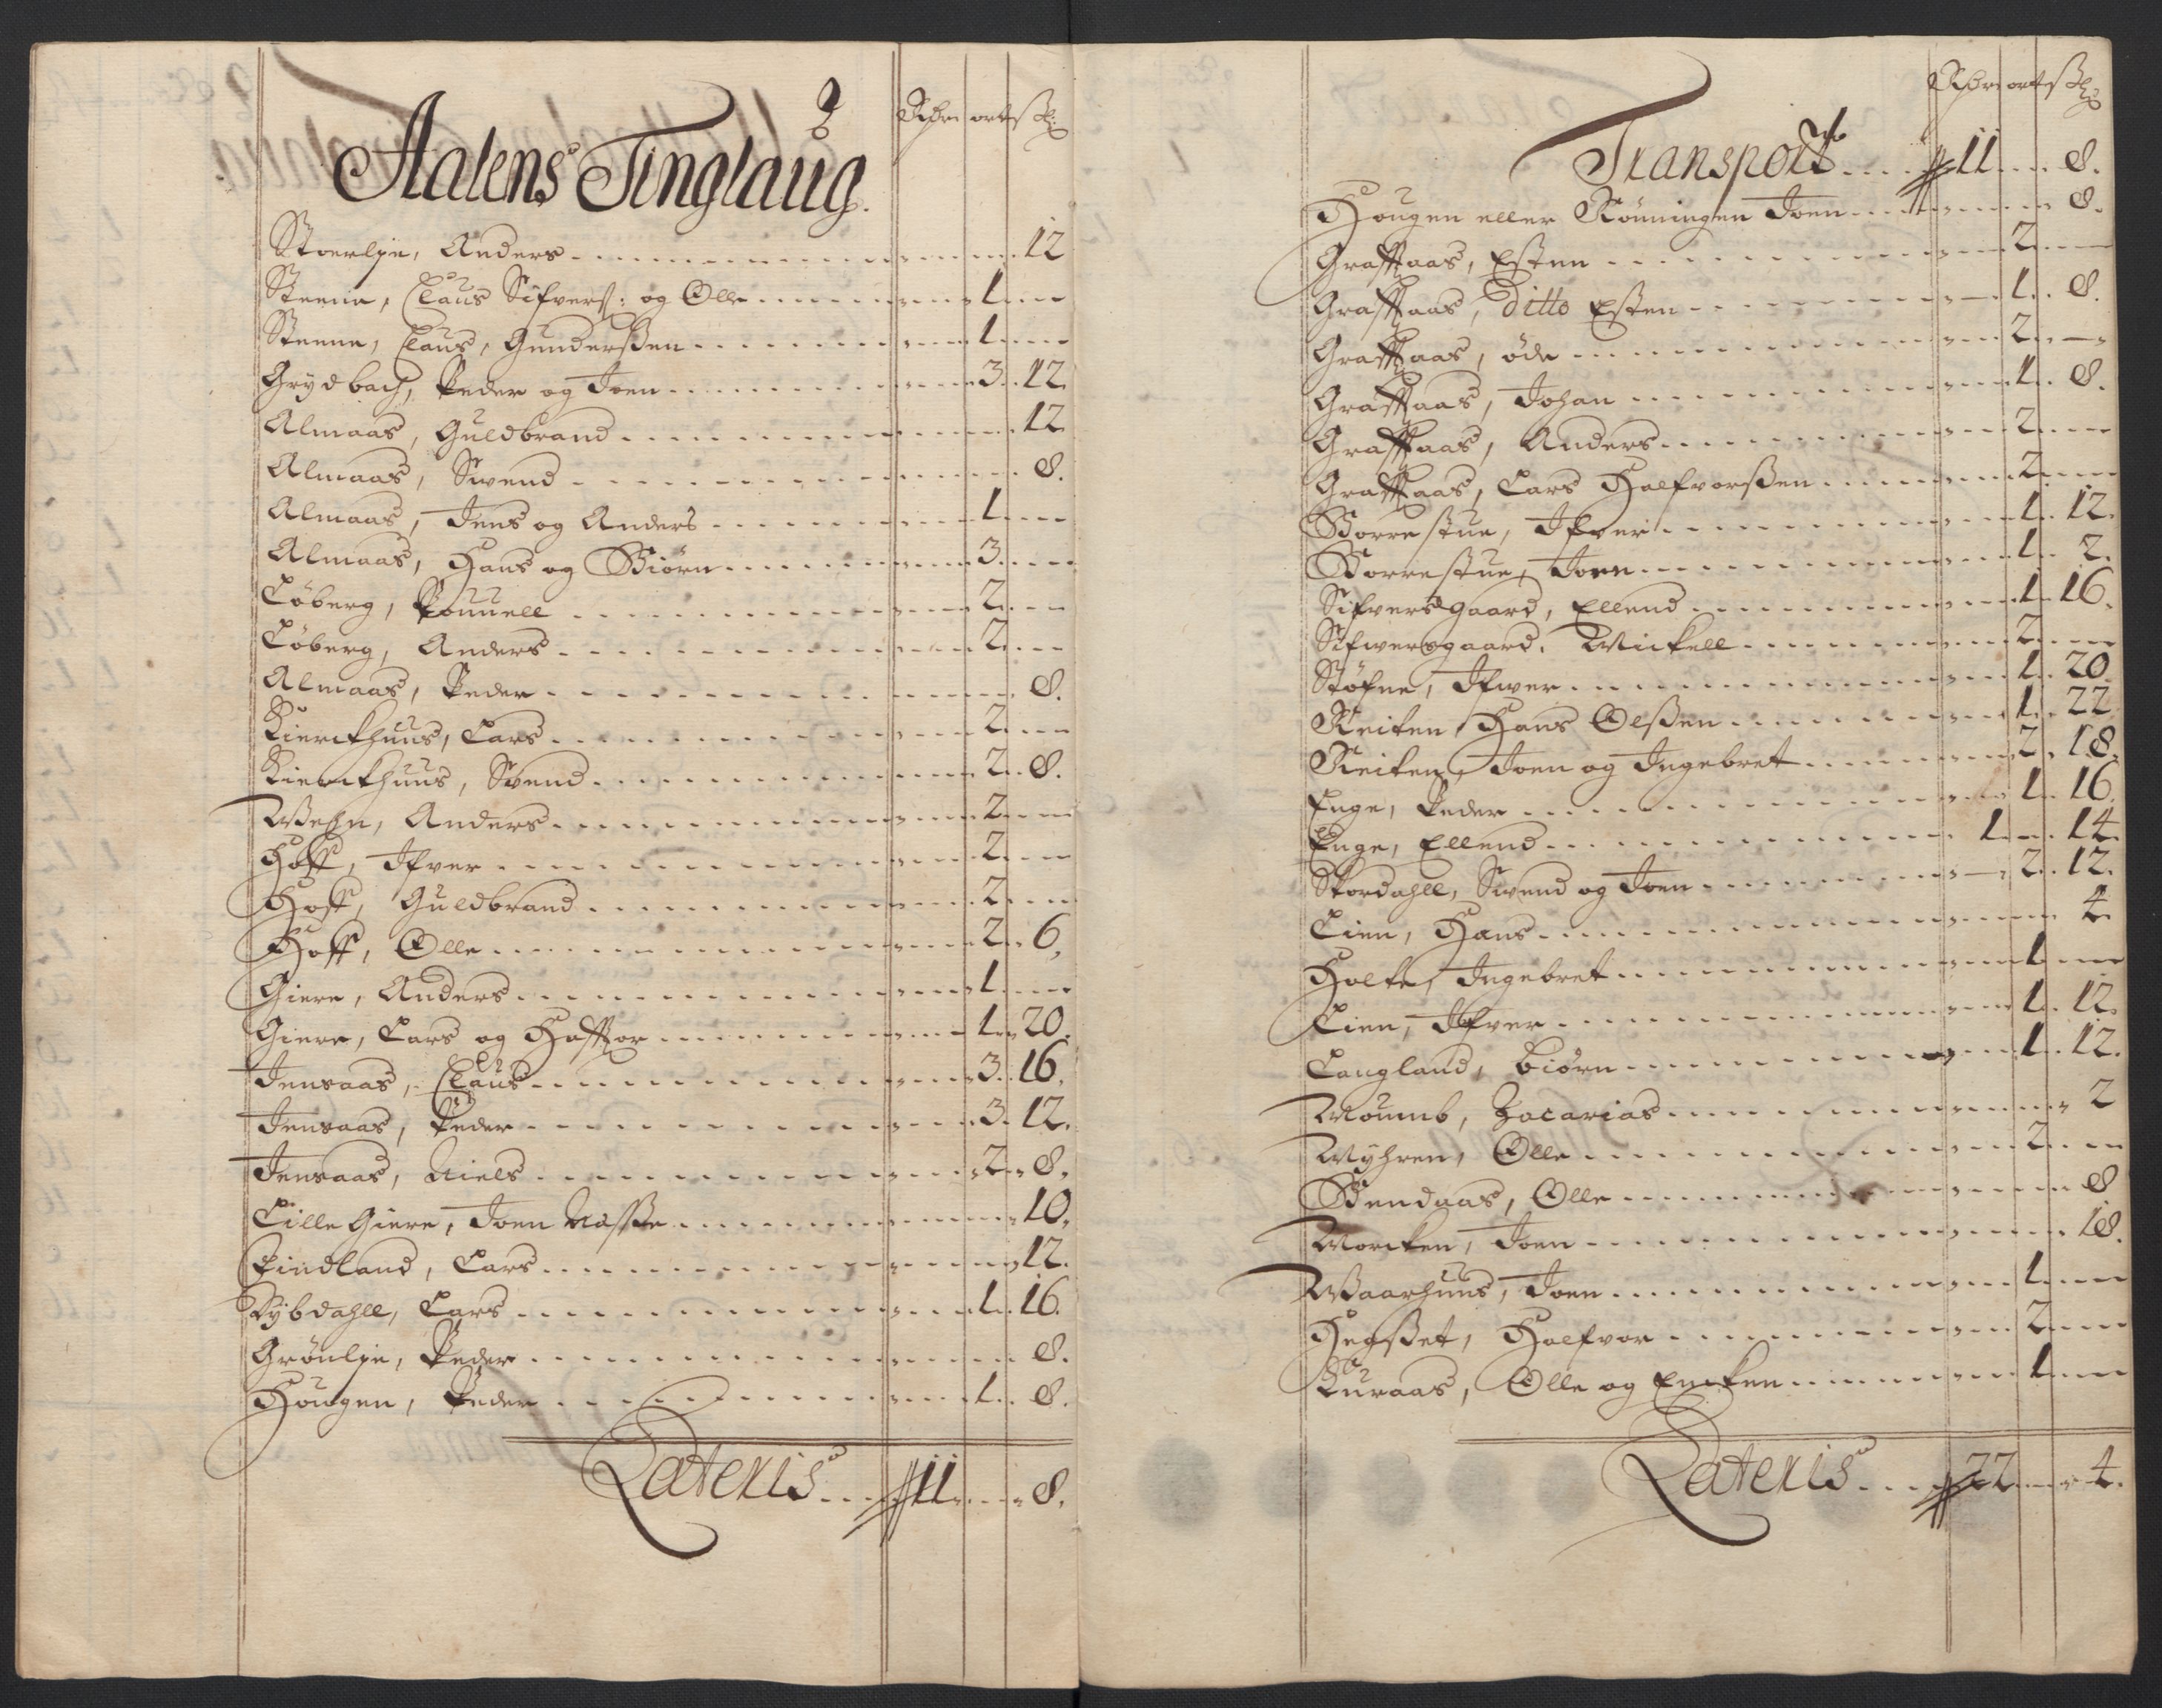 Aalens Tinglaug.
Rdr ort ß
Stoerlye, Anders 12
Steene, Claus Sifvers: og Olle 1
Steene, Claus, Gunderßen 1
Grydbach, Peder og Joen 3 12
Almaas, Guldbrand 12
Almaas, Swend 8.
Almaas, Jens og Anders 1
Almaas, Hans og Biörn 3
Löberg, Pouuell 2
Löberg, Anders 2
Almaas, Peder 8.
Kierckhuus, Lars 2
Kierckhuus, Svend 2 8.
Wehn, Anders 2
Hoff, Ifver 2
Hoff, Guldbrand 2
Hoff, Olle 2 6.
Giere, Anders 1
Giere, Lars og Haffor 1 20.
Jensaas, Claus 3 16.
Jensaas, Peder 3 12.
Jensaas, Niels 2 8.
Lille Giere, Joen Naße 10.
Findland, Lars 12.
Rybdahll, Lars 1 16.
Grönlye, Peder 8.
Hougen, Peder 1 8.
Lateris 11 8.
Rdr ort ß
Transport 11 8.
Hougen eller Rönningen Joen 8.
Graffaas, Esten 2
Graffaas, Ditto Esten 1 8.
Graffaas, öde 2
Graffaas, Johan 1 8.
Graffaas, Anders 2
Graffaas, Lars Halfvorßen 2
Borrestue, Ifver 1 12.
Borrestue, Joen 1 2.
Sifversgaard, Ellend 1 16.
Sifwersgaard, Mickell 2
Stöfne, Ifwer 1 20
Reiten Hans Olßen 1 22
Reiten, Joen og Ingebret 2 18.
Enge, Peder 1 16.
Enge, Ellend 1 14
Skordahll, Swend og Joen 2 12.
Lien, Hans 4
Holte, Ingebret 1
Lien, Ifver 1 12.
Langland, Biörn 1 12.
Moumb, Zacarias 2
Myhren, Olle 2
Bendaas, Olle 8
Morcken, Joen 18.
Waarhuus, Joen 1
Hegßet, Halfvor 2
Kuraas, Olle og Encken 1
Lateris 22 4.